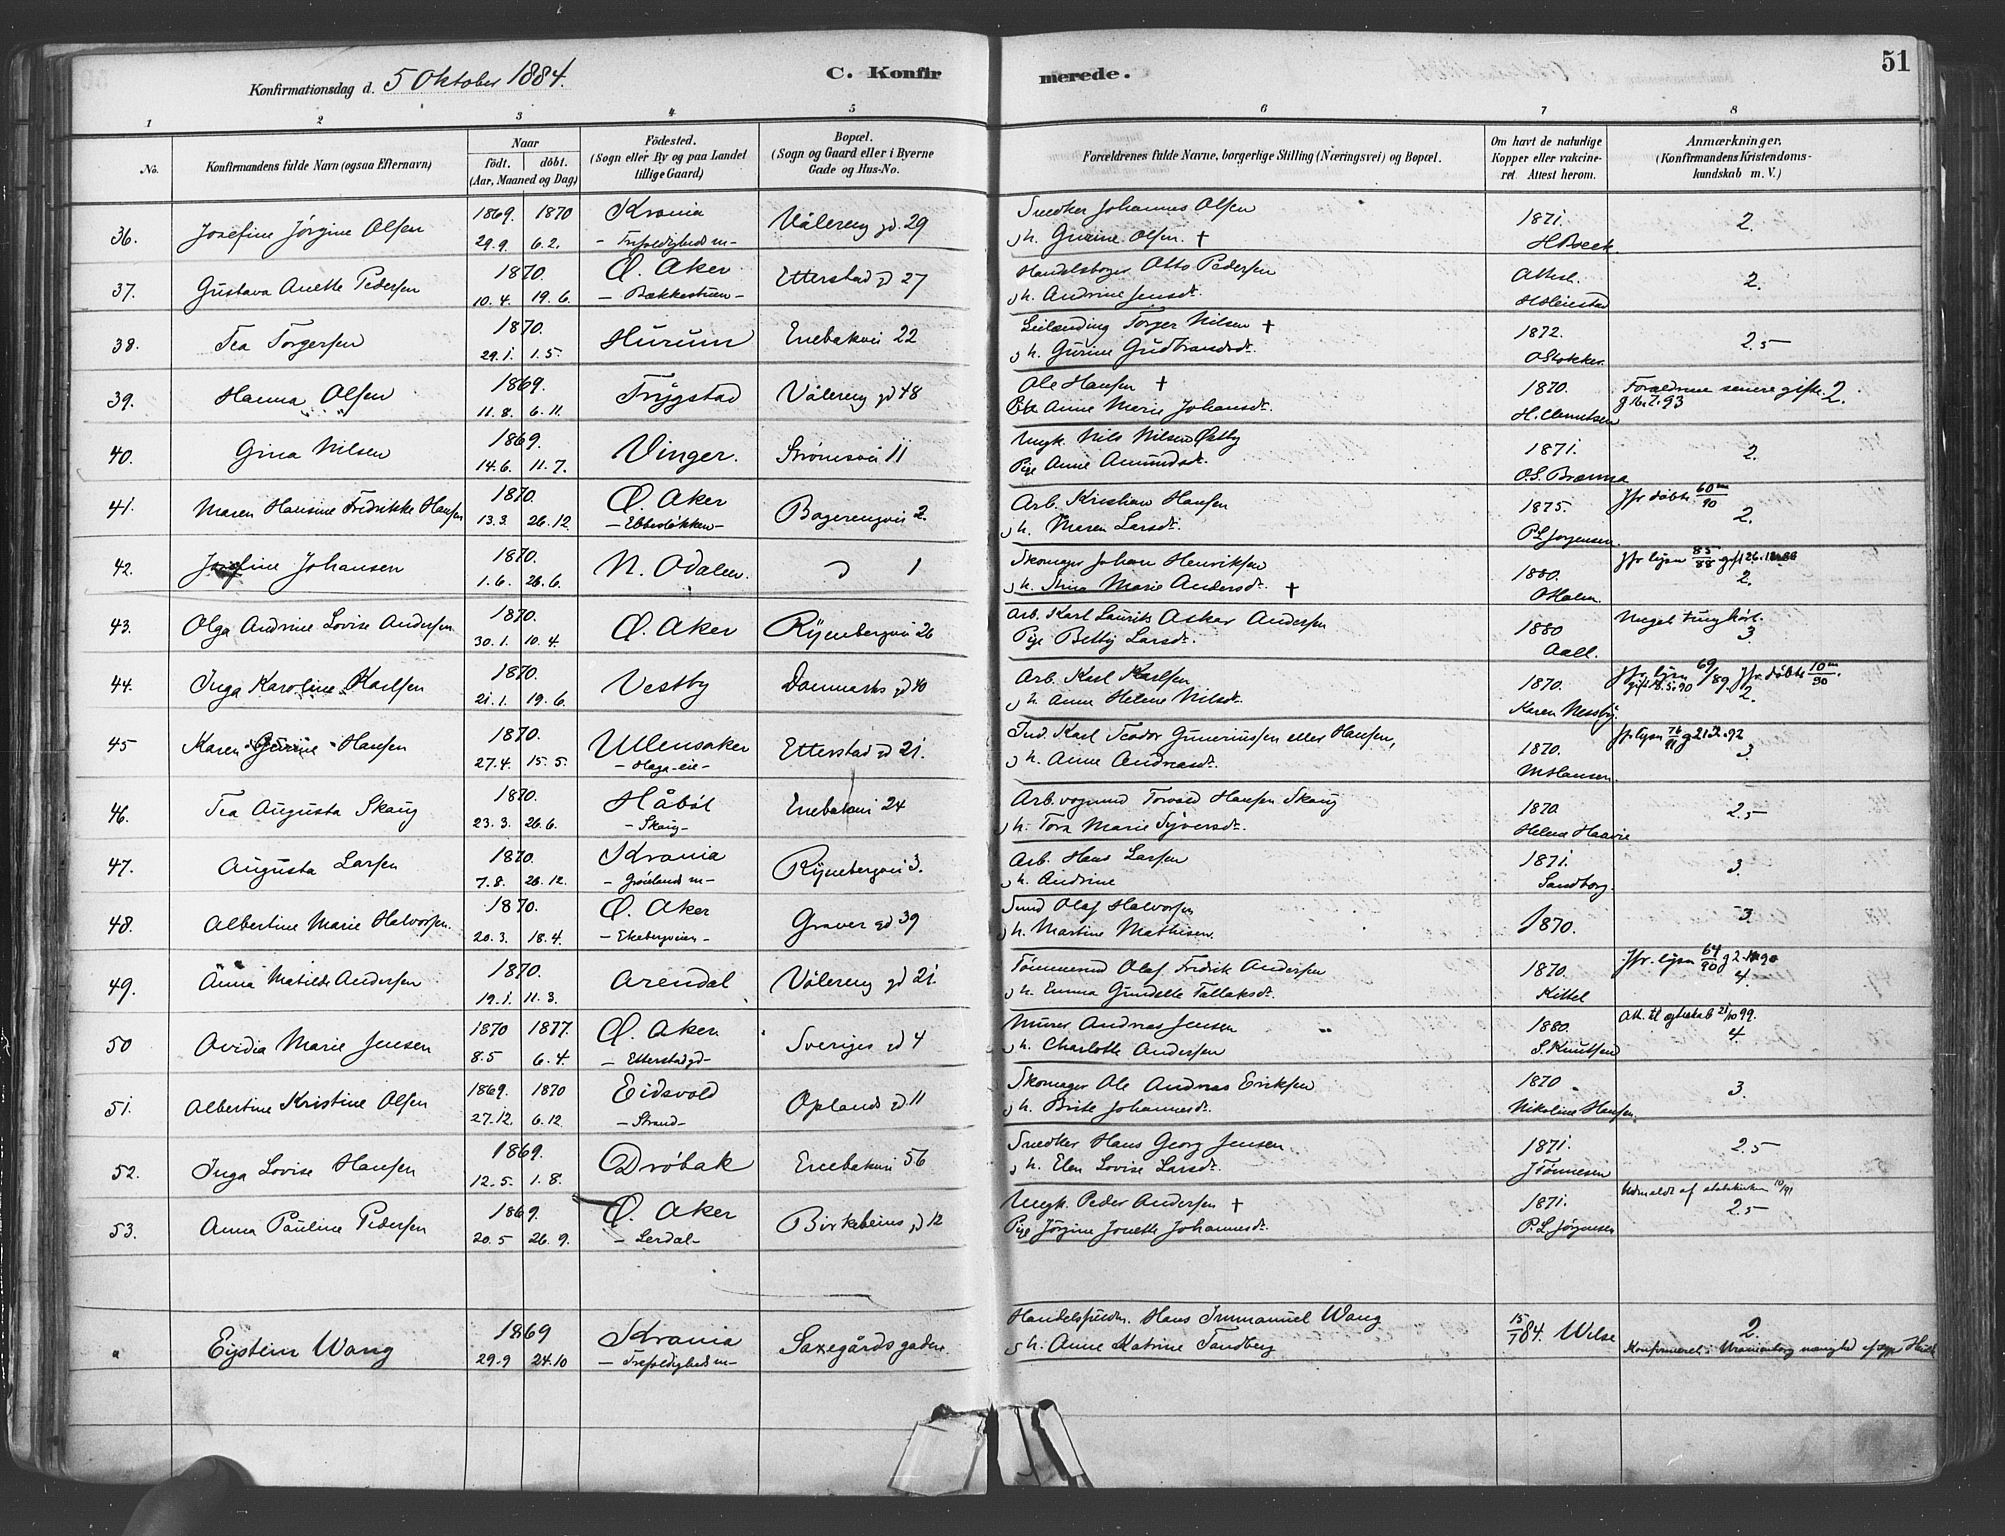 51
Konfirmationsdag d. 5 Oktober 1884.
C. Konfirmerede.
1 2 3 4 5 6 7 8
No. Konfirmandens fulde Navn (ogsaa Efternavn) Naar födt. döbt. (Aar, Maaned og Dag) Födested. (Sogn eller By og paa Landet tillige Gaard) Bopæl. (Sogn og Gaard eller i Byerne Gade og Hus-No. Forældrenes fulde Navne, borgerlige Stilling (Næringsvei) og Bopæl. Om havt de naturlige Kopper eller vaccineret. Attest herom. Anmærkninger, (Konfirmandens Kristendomskundskab m. V.)
36. Josefine Jørgine Olsen 1869. 1870 Krania Vålereng gd. 29 Snedker Johannes Olsen 1871. 2.
29.9. 6.2. - Trefoldigheds m- h. Gurine Olsen +
37. Gustava Anette Pedersen 1870. Ø. Aker Etterstad gd 27 Otto Pedersen Attest. 2.
10.4. 19.6. - Bækkestuen - h. Andrine Jensdt.
38. Tea Torgersen 1870. Hurum Enebakvei 22 Leilænding Torger Nilsen + 1872. 2.5
29.1. 1.5. h. Gurine Gudbrandsdt. O Stokker
39. Hanna Olsen 1869. Trygstad Vålereng gd 48 Ole Hansen + 1870. Forældrene senere gifte. 2.
11.8. 6.11. Anne Marie Johansdt. g 16.7.93
40. Gina Nilsen 1869. Vinger. Strømsvei 11 Ungk. Nils Nilsen Østby 1871. 2.
14.6. 11.7. Pige Anne Amundsdt.
41. Maren Hansine Fredrikke Hansen 1870. Ø. Aker 2. Arb. Kristian Hansen 1875. Jfr døbte 60m/90 2.
13.3. 26.12. - Ebbesløkken - h. Maren Larsdt. P L Jørgensen
42. Josefine Johansen 1870. N. Odalen. 1 Skomager Johan Henriksen 1880. Jfr lysn 85/88
1.6. 26.6. h. Stina Marie Andersdt. + O Holm 2.
43. Olga Andrine Lovise Andersen 1870. Ø. Aker Rynebergvei 26 Arb. Karl Laurits Asker Andersen 1880 Meget tunghört.
30.1. 10.4. Pige Betty Larsdt. Aall. 3
44. Inga Karoline Karlsen 1870. Vestby Danmarks gd 40 Arb. Karl Karlsen 1870. Jfr. lysn 69/89. Jfr. døbte 10m/90
21.1. 19.6. h. Anne Helene Nilsdt. Karen Nessby. gift 18.5.90 2.
45 Karen Gurine Hansen 1870. Ullensaker Etterstad gd 21. Ind. Karl Teodor Guneriussen eller Hansen, 1870. Jfr. lysn 76/91
27.4. 15.5. - Haga-eie - h. Anne Andreasdt. M Hansen. 3
46. Tea Augusta Skaug 1870. Håböl Enebakvei 24 Arb. vognmd Torvald Hansen Skaug 1870. 2.5
23.3. 26.6. - Skaug - h. Tora Marie Syversdt. Helene Haavie
47. Augusta Larsen 1870. Krania Rynebergvei 3. Arb. Hans Larsen 1871. 3.
7.8. 26.12. - Grönlands m - h. Andrine Sandborg.
48. Albertine Marie Halvorsen. 1870. Ø. Aker Graver gd 39 Smed Olaf Halvorsen 1870. 3.
20.3. 18.4. - Ekebergveien - h. Martine Mathisen.
49. Anna Matilde Andersen 1870. Arendal Vålereng gd 21. Tömmermd Olaf Fredrik Andersen 1870. Jfr. lysn 64/90
19.1. 11.3. h. Emma Gundelle Tallaksdt. Kittel 4.
50 Ovidia Marie Jensen 1870 1877. Ø. Aker Sveriges gd 4 Murer Andreas Jensen 1880. Att. til ægteskab 21/10 99.
8.5 6.4. - Etterstad gd - h. Charlotte Andersen S. Knutsen 4.
51. Albertine Kristine Olsen 1869. 1870 Eidsvold Oplands gd 11 Skomager Ole Andreas Eriksen 1870 3.
27.12. 6.12. - Strand - h. Brite Johannesdt. Nikoline Hansen.
52. Inga Lovise Hansen 1869. Dröbak Enebakvei 56 Snedker Hans Georg Jensen 1871. 2.5
12.5. 1.8. h. Elen Lovise Larsdt. J Tönnesen
53. Anna Pauline Pedersen 1869. Ø. Aker Birkebeins gd 12 Ungk. Peder Andersen + 1871. Udmeldt af statskirken 10/91
20.5 26.9. - Lerdal - Pige Jørgine Jonette Johannesdt. P. L. Jørgensen 2.5
" Eystein Wang 1869 Krania Saxegårdsgaden Hans Immanuel Wang 15/7 84. Wilse 2.
29.9 24.10 - Trefoldigheds m - h. Anne Katrine Tandberg Konfirmeret i Uranienborg